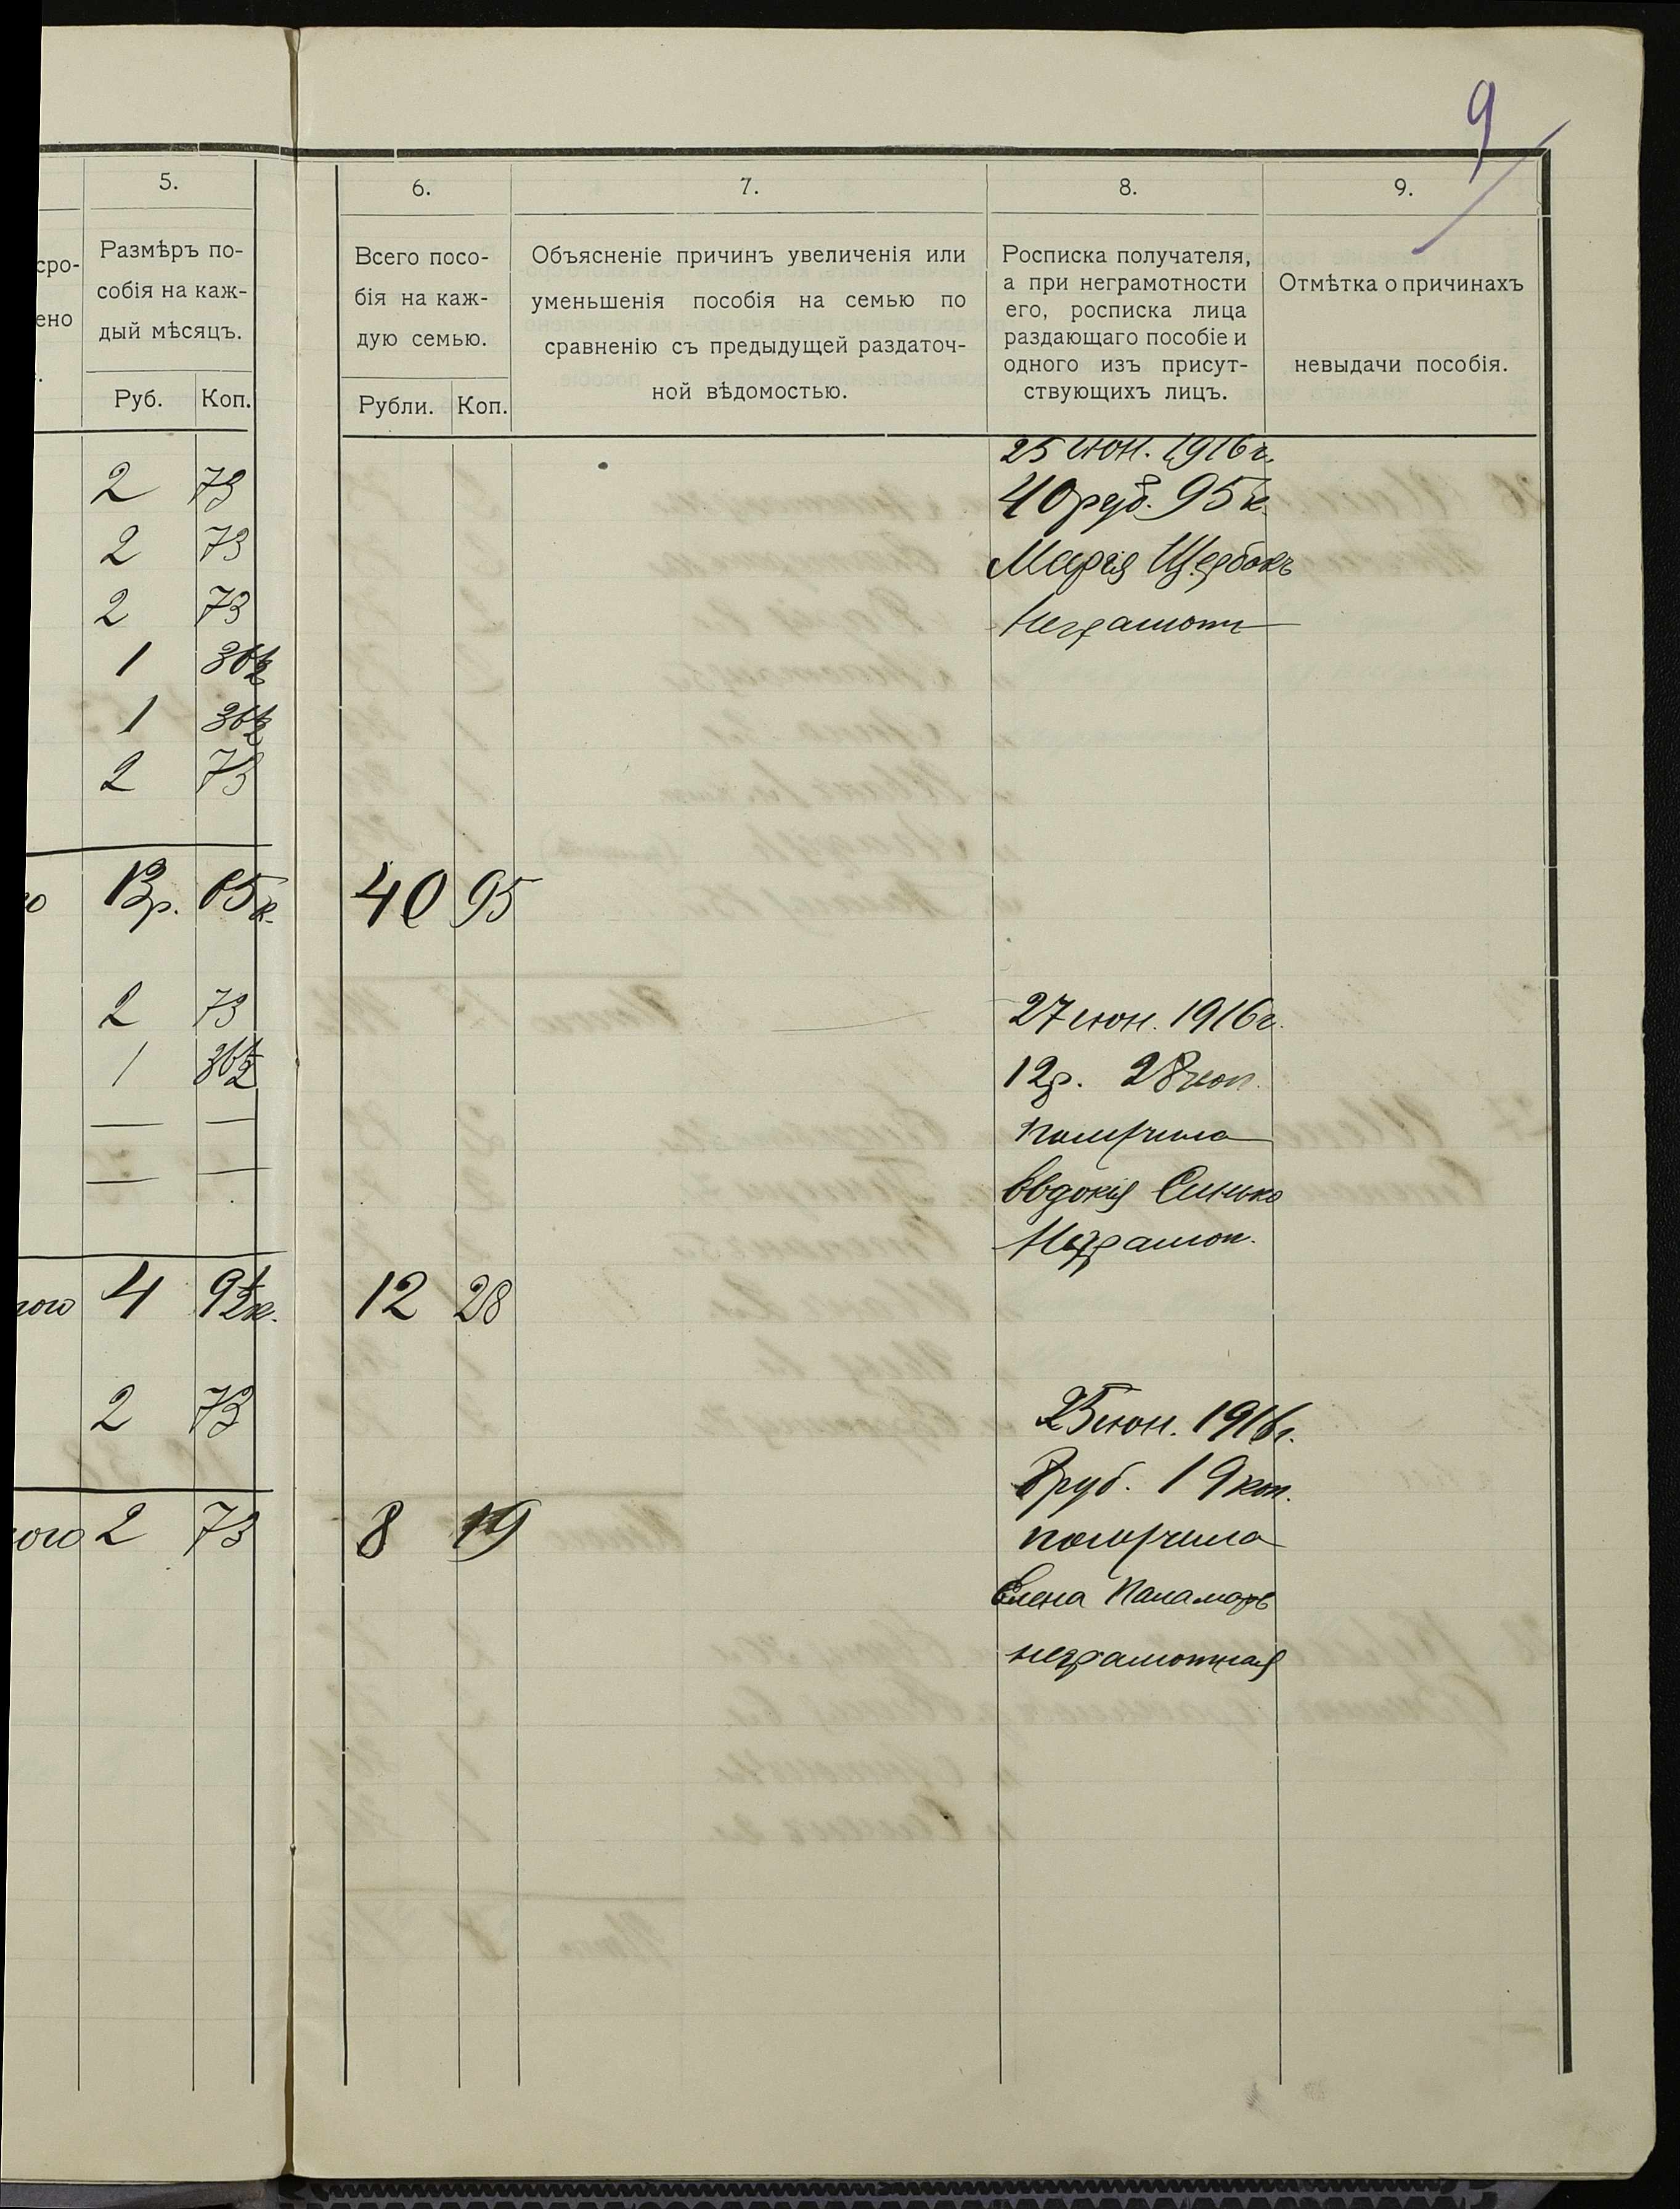 9
5.
Размѣръ по-
собія на каж-
дый мѣсяцъ.
Руб. Коп.
сро-
ено
2 73
2 73
2 73
1 36½
1 36½
2 73
13р. 65к.
2 73
1 36½
— —
— —
4 9½к.
2 73
2 73
6.
Всего посо-
бія на каж-
дую семью.
Рубли. Коп.
40 95
12 28
8 19
7.
Объясненіе причинъ увеличенія или
уменьшенія пособія на семью по
сравненію съ предыдущей раздаточ-
ной вѣдомостью.
8.
Росписка получателя,
а при неграмотности
его, росписка лица
раздающаго пособіе и
одного изъ присут-
ствующихъ лицъ.
25 июн. 1916 г.
40 руб. 95 к.
Марія Щербакъ
Неграмотн
27 июн. 1916г.
12р. 28 коп.
получила
Евдокія Синько
Неграмот.
25 июн. 1916г.
8 руб. 19 коп.
получила
Елена Паламарь
неграмотная
9.
Отмѣтка о причинахъ
невыдачи пособія.